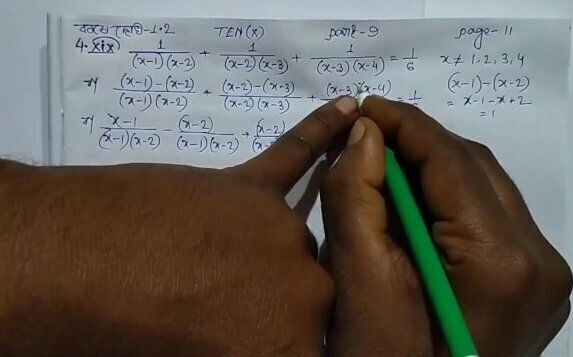 কষে দেখি-1.2 TEN(X) part-9 page-11
4.(xix) 1/((x-1)(x-2)) + 1/((x-2)(x-3)) + 1/((x-3)(x-4)) = 1/6 x ≠ 1, 2, 3, 4
বা ((x-1)-(x-2))/((x-1)(x-2)) + ((x-2)-(x-3))/((x-2)(x-3)) + (x-3) (x-4) = 1 (x-1)-(x-2)
= x-1-x+2
= 1
বা (x-1)/((x-1)(x-2)) - (x-2)/((x-1)(x-2)) + (x-2)/(x-